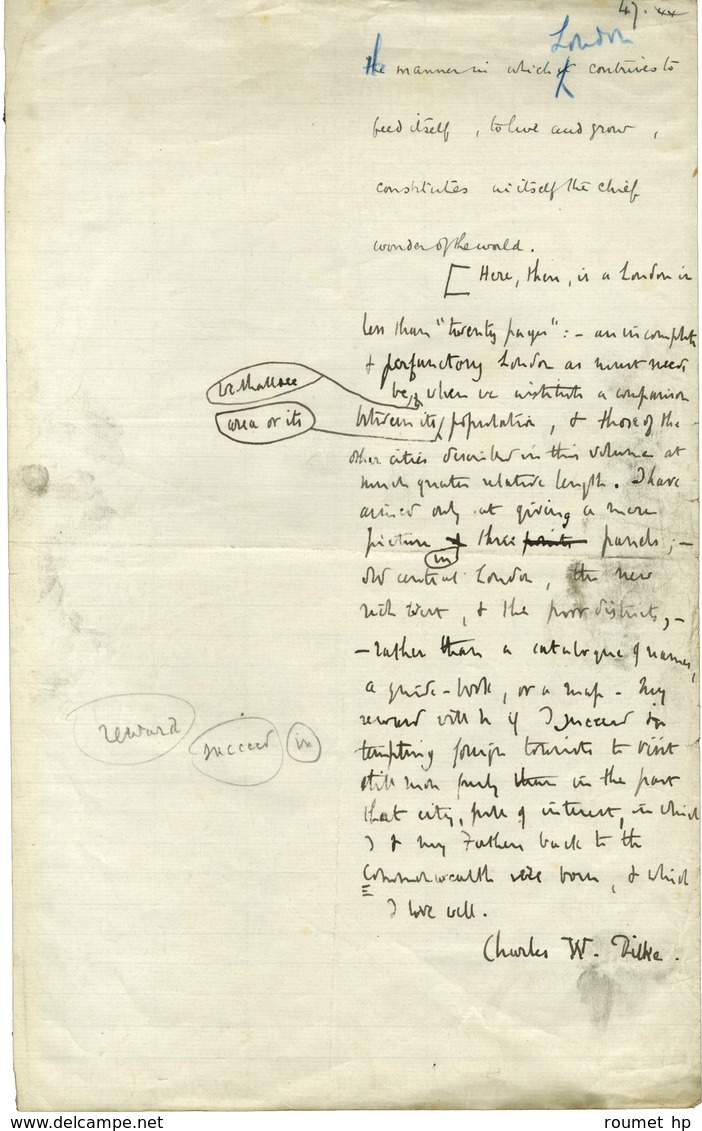 47.
London
the manner in which it contrives to
feed itself, to live and grow,
constitutes in itself the chief
wonder of the world.
[Here, then, is a London in
less than "twenty pages":- an incomplete
& perfunctory London as must needs
we shall see
be, when we institute a comparison
area or its
between its population, & those of the
other cities described in this volume at
much greater relative length. I have
aimed only at giving a mere
picture in three points panels;-
old central London, the new
rich West, & the poor districts,-
-rather than a catalogue of names,
a guide-book, or a map. My
reward will be if I succeed in
reward succeed in
tempting foreign tourists to visit
still more freely than in the past
that city, full of interest, in which
I & my Fathers back to the
Commonwealth were born, & which
I love well.
Charles W. Dilke.
www.delcampe.net
roumet hp